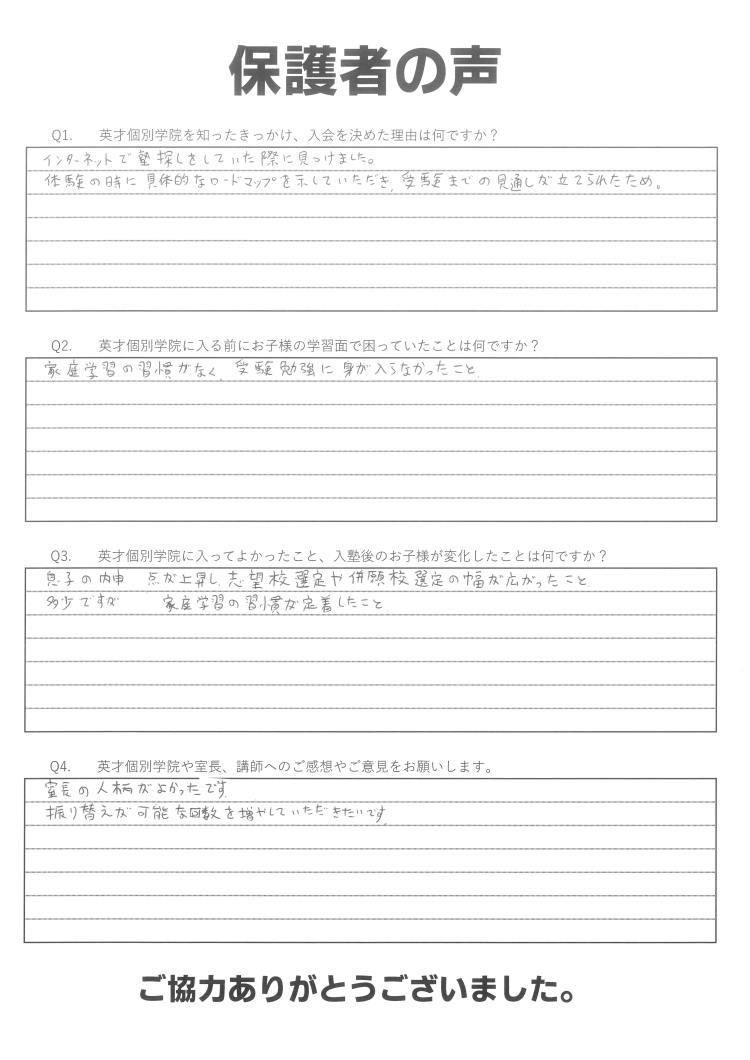 保護者の声
Q1. 英才個別学院を知ったきっかけ、入会を決めた理由は何ですか？
インターネットで塾探しをしていた際に見つけました。
体験の時に具体的なロードマップを示していただき、受験までの見通しが立てられたため。
Q2. 英才個別学院に入る前にお子様の学習面で困っていたことは何ですか？
家庭学習の習慣がなく、受験勉強に身が入らなかったこと
Q3. 英才個別学院に入ってよかったこと、入塾後のお子様が変化したことは何ですか？
息子の内申 点が上昇し、志望校選定や併願校選定の幅が広がったこと
多少ですが 家庭学習の習慣が定着したこと
Q4. 英才個別学院や室長、講師へのご感想やご意見をお願いします。
室長の人柄がよかったです
振り替えが可能な回数を増やしていただきたいです
ご協力ありがとうございました。